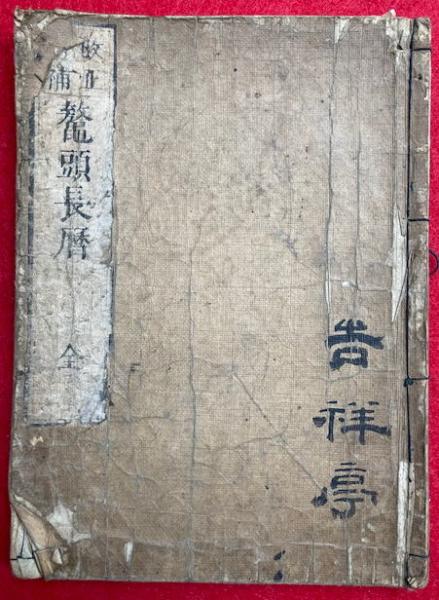 吉祥亭
改正
補
鼇頭長暦
全